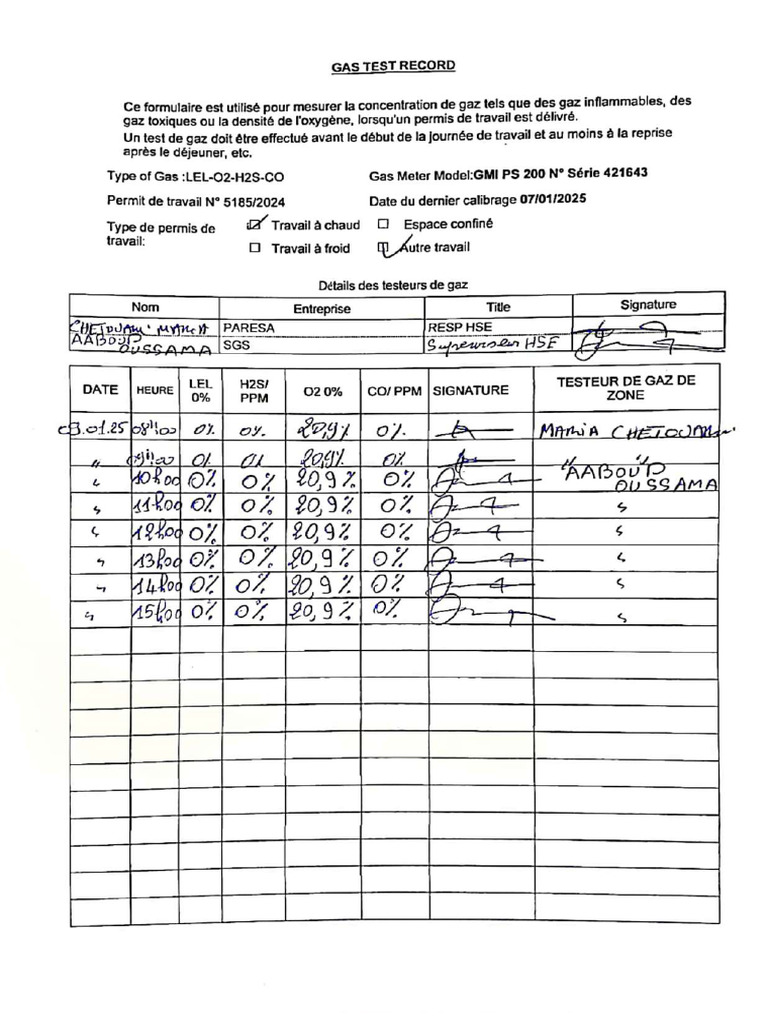 GAS TEST RECORD
Ce formulaire est utilisé pour mesurer la concentration de gaz tels que des gaz inflammables, des
gaz toxiques ou la densité de l'oxygène, lorsqu'un permis de travail est délivré.
Un test de gaz doit être effectué avant le début de la journée de travail et au moins à la reprise
après le déjeuner, etc.
Type of Gas :LEL-O2-H2S-CO Gas Meter Model:GMI PS 200 N° Série 421643
Permit de travail N° 5185/2024 Date du dernier calibrage 07/01/2025
Type de permis de travail: ☑ Travail à chaud ☐ Espace confiné
☐ Travail à froid ☑ Autre travail
Détails des testeurs de gaz
Nom Entreprise Title Signature
CHETOUANI MARIA PARESA RESP HSE
AABOUD OUSSAMA SGS Superviseur HSE
DATE HEURE LEL 0% H2S/ PPM O2 0% CO/ PPM SIGNATURE TESTEUR DE GAZ DE ZONE
09.01.25 08h00 0% 0% 20,9% 0% MARIA CHETOUANI
" 09h00 0% 0% 20,9% 0% " "
" 10h00 0% 0% 20,9% 0% AABOUD OUSSAMA
" 11h00 0% 0% 20,9% 0% "
" 12h00 0% 0% 20,9% 0% "
" 13h00 0% 0% 20,9% 0% "
" 14h00 0% 0% 20,9% 0% "
" 15h00 0% 0% 20,9% 0% "